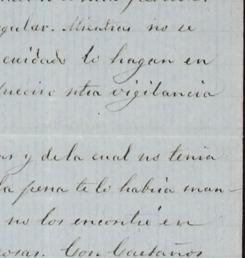 gular. Mientras no se
cuidado lo hagan en
preciso ntra vigilancia
as y de la cual no tenia
la pena te lo habia man-
no los encontré en
osas. Con Caetanos